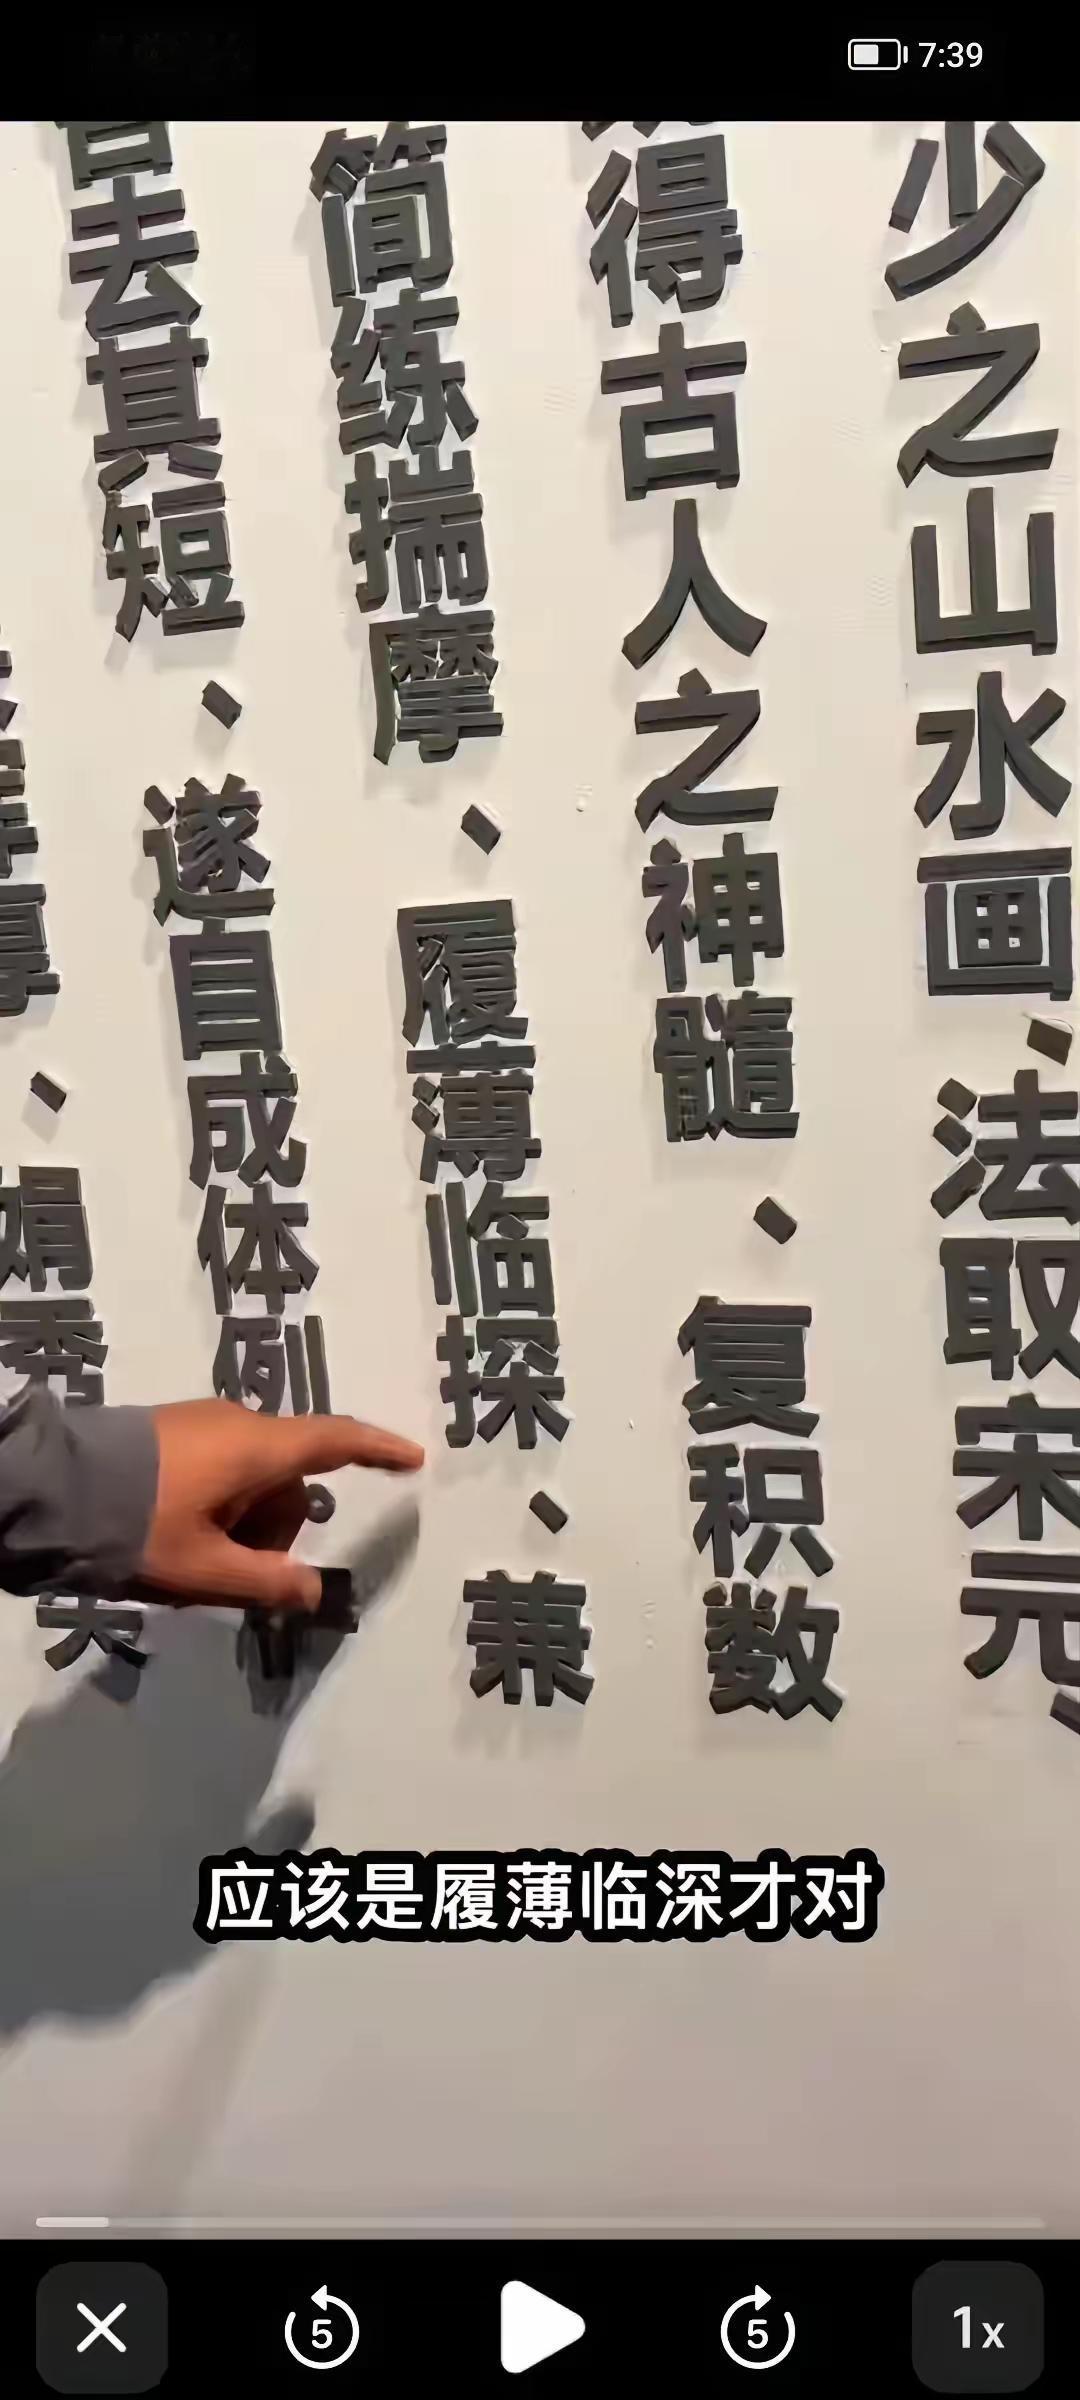 7:39
少之山水画、法取宋元、
得古人之神髓、复积数
简练揣摩、履薄临探、兼
去其短、遂自成体例。
、娟秀
应该是履薄临深才对
5
5
1x